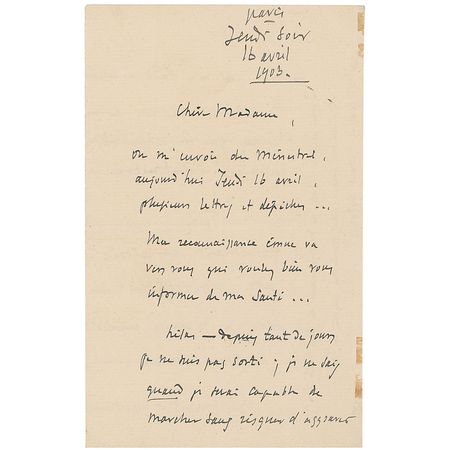 Paris
Jeudi Soir
16 avril
1903.
Chère Madame,
on m'envoie du Ménestrel,
aujourd'hui Jeudi 16 avril,
plusieurs lettres et dépêches ...
Ma reconnaissance émue va
vers vous qui voulez bien vous
informer de ma Santé ...
hélas — depuis tant de jours
je ne suis pas sorti ; je ne sais
quand je serai capable de
marcher sans risquer d'aggraver